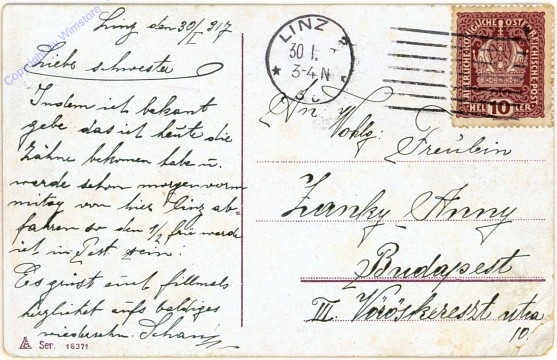 Linz den 30/I 917
Liebe schwester
Indem ich bekant
gebe das ich heute die
Zähne bekomen hab u.
werde schon morgen vorm
mitag von hier Linz ab-
fahren so den 1/2 frie werd
ich in Pest sein.
Es grüst euch fillmals
herzlichst aufs baldiges
niedersehn. Schani
Ser. 16371
LINZ 2
30 I.
3-4 N
KAISERLICHE KÖNIGLICHE ÖSTERREICHISCHE POST
HELLER 10 HELLER
An. Wohlg:
Freulein
Zanky Anny
Budapest
III. Vöröskereszt utca
10.
Copyright by Wimstore